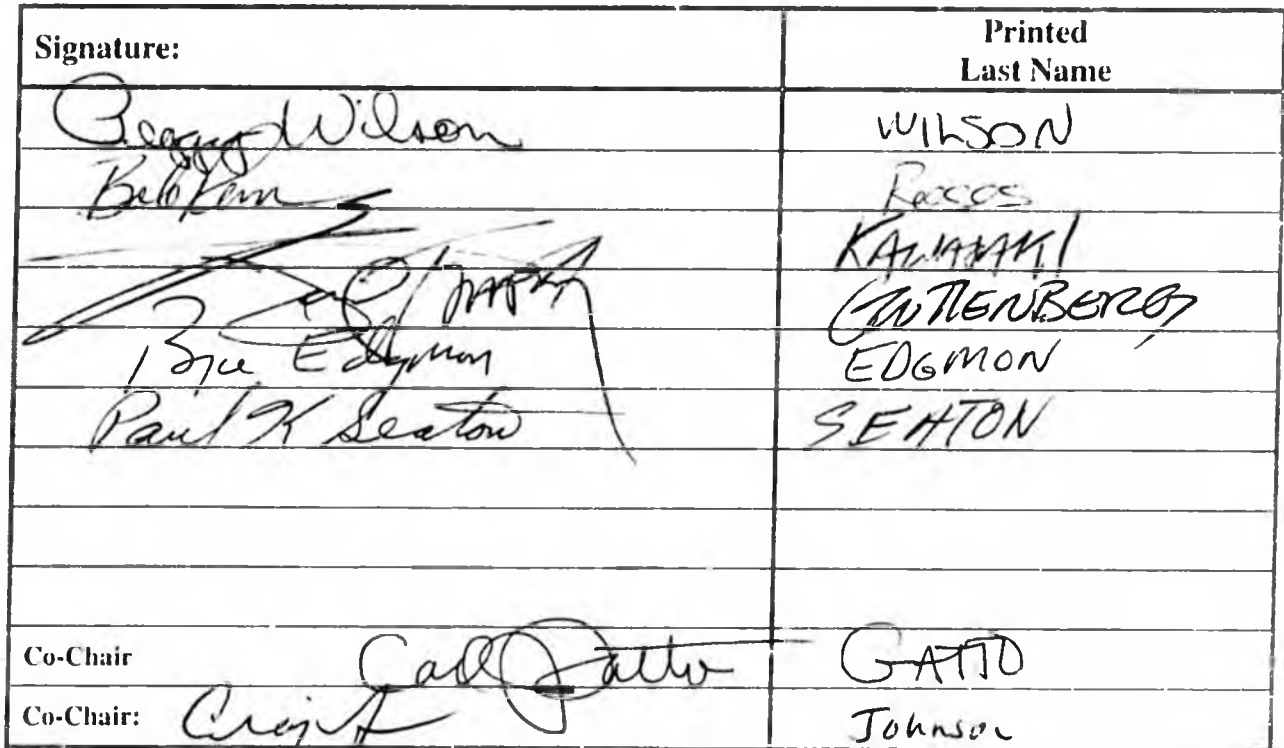 Signature: Printed
Last Name
Peggy Wilson WILSON
Bob
KAWASAKI
GUTTENBERG
Bryce Edgmon EDGMON
Paul K Seaton SEATON
Co-Chair Carl Gatto GATTO
Co-Chair: Craig Johnson